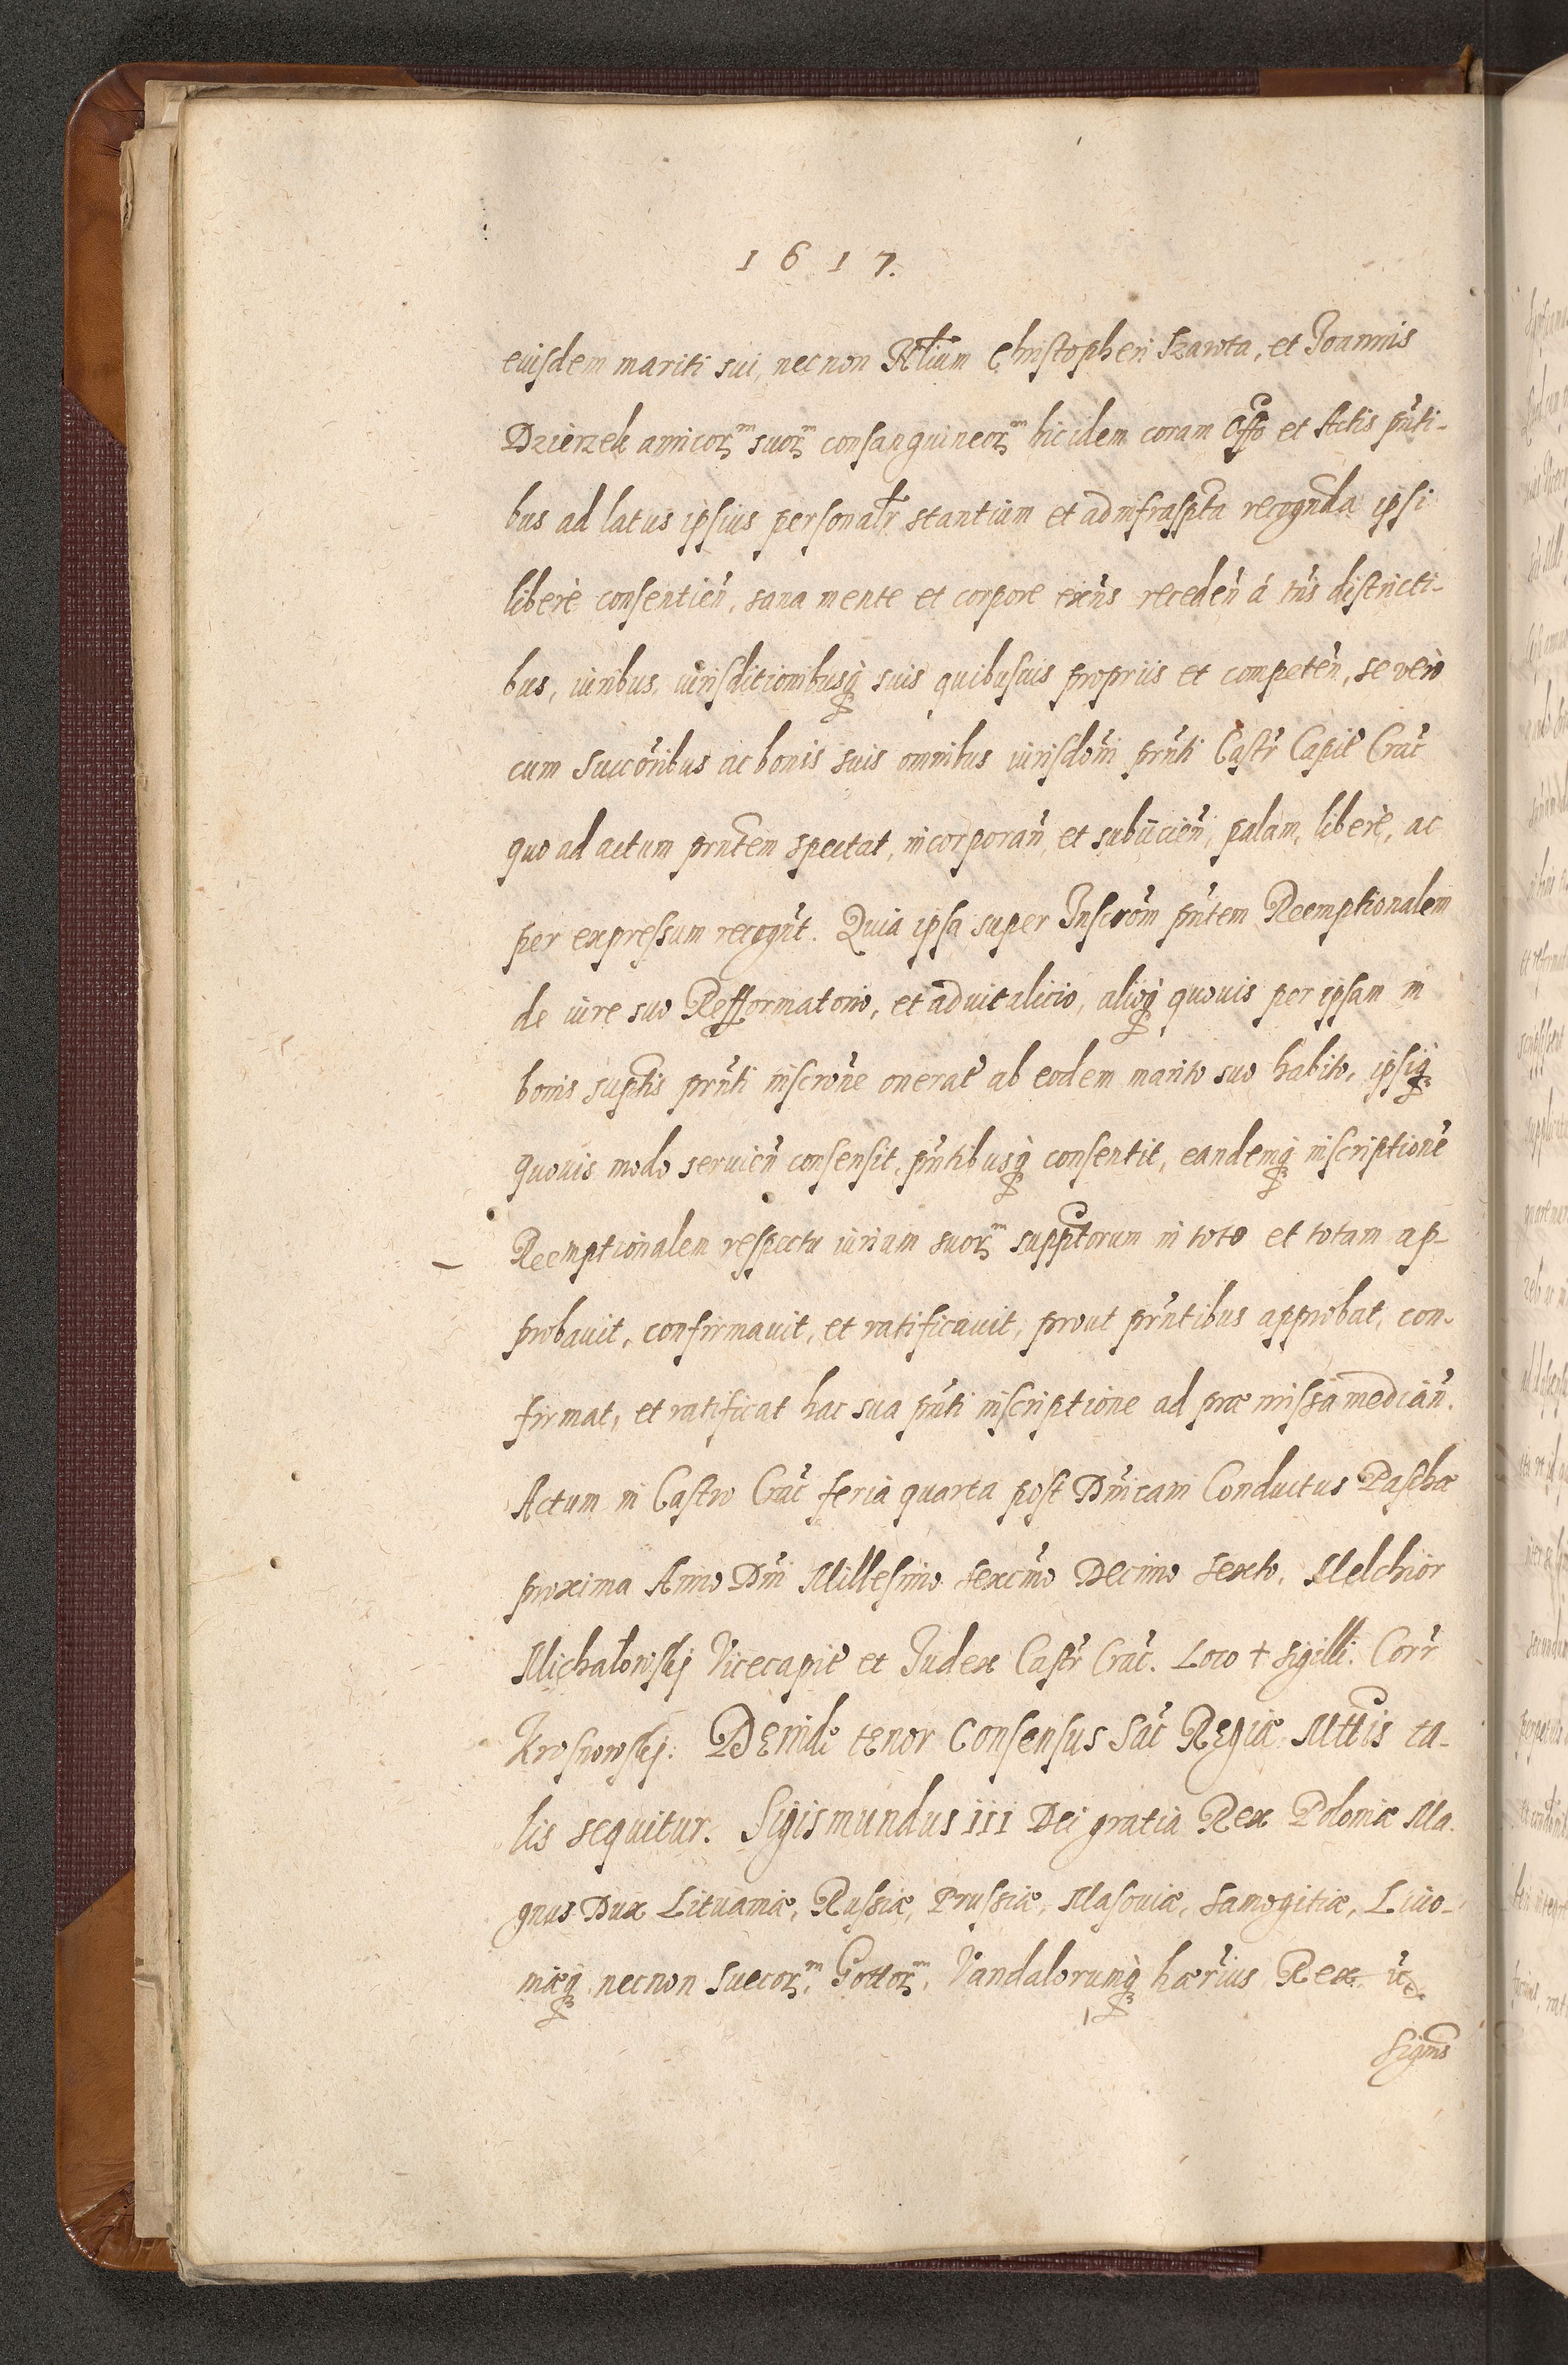 1617.
eiusdem mariti sui, necnon Nĺium Christopheri Szarota, et Joannis
Dzierzek amicorꝫm suorꝫm consanguineorꝫm hicidem coram Offo et Actis pn̄ti-
bus ad latus ipsius personalr̄ stantium et ad infraspta recognda ipsi
liberè consentien̄, sana mente et corpore exn̄s receden̄ á tn̄s districti-
bus, iuribus, iurisditionibusq̨ suis quibusuis propriis et competen̄, se verò
cum Succōribus ac bonis suis omnibus iurisdōni prn̄ti Castr̄ Capit̄ Crac̄
quo ad actum prn̄tem spectat, incorporan̄, et subiicien̄, palam, liberè, ac
per expressum recogn̄t. Quia ipsa super Inscrōm pn̄tem Reemptionalem
de iure suo Refformatorio, et aduitalicio, alioq̨ quouis per ipsam in
bonis suptis prn̄ti inscrōne onerat̄ ab eodem marito suo habito, ipsiq̨
quouis modo seruien̄ consensit, pn̄tibusq̨ consentit, eandemq̨ inscriptionē
Reemptionalem respectu iurium suorꝫm supptorum in toto et totam ap-
probauit, confirmauit, et ratificauit, prout prn̄tibus approbat, con-
firmat, et ratificat hac sua pn̄ti inscriptione ad præmissa median̄.
Actum in Castro Crac̄ feria quarta post Dn̄icam Conductus Paschæ
proxima Anno Dn̄i Millesimo sexcm̄o Decimo Sexto. Melchior
Michałowskj Vicecapit̄ et Judex Castr̄ Crac̄. Loco + sigilli. Corr̄
Krosnowskj. Deinde tenor Consensus Sac̄ Regiæ Mttis ta-
lis sequitur. Sigismundus III Dei gratia Rex Poloniæ Ma-
gnus Dux Lituaniæ, Russiæ, Prussiæ, Masouiæ, Samogitiæ, Liuo-
niæq̨ necnon Suecorꝫm, Gottorꝫm, Vandalorumq̨ hær̄ius Rex
Signis